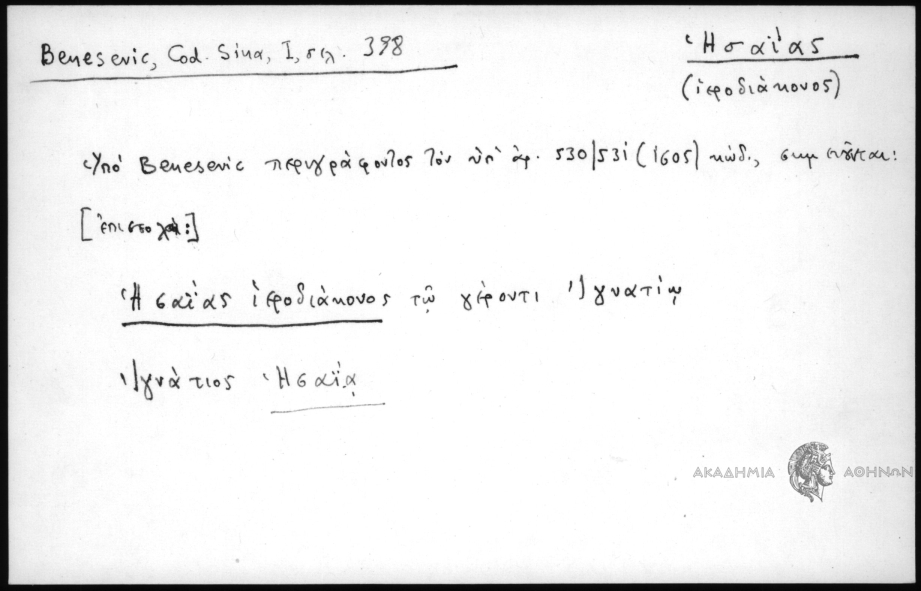 Benesevic, Cod. Sina, I, σελ. 398
Ἡσαΐας
(ἱεροδιάκονος)
Ὑπὸ Benesevic περιγράφοντος τὸν ὑπ' ἀρ. 530/531 (1605) κώδ., σημειοῦνται:
[ἐπιστολαὶ:]
Ἡσαΐας ἱεροδιάκονος τῷ γέροντι Ἰγνατίῳ
Ἰγνάτιος Ἡσαΐᾳ
ΑΚΑΔΗΜΙΑ ΑΘΗΝΩΝ